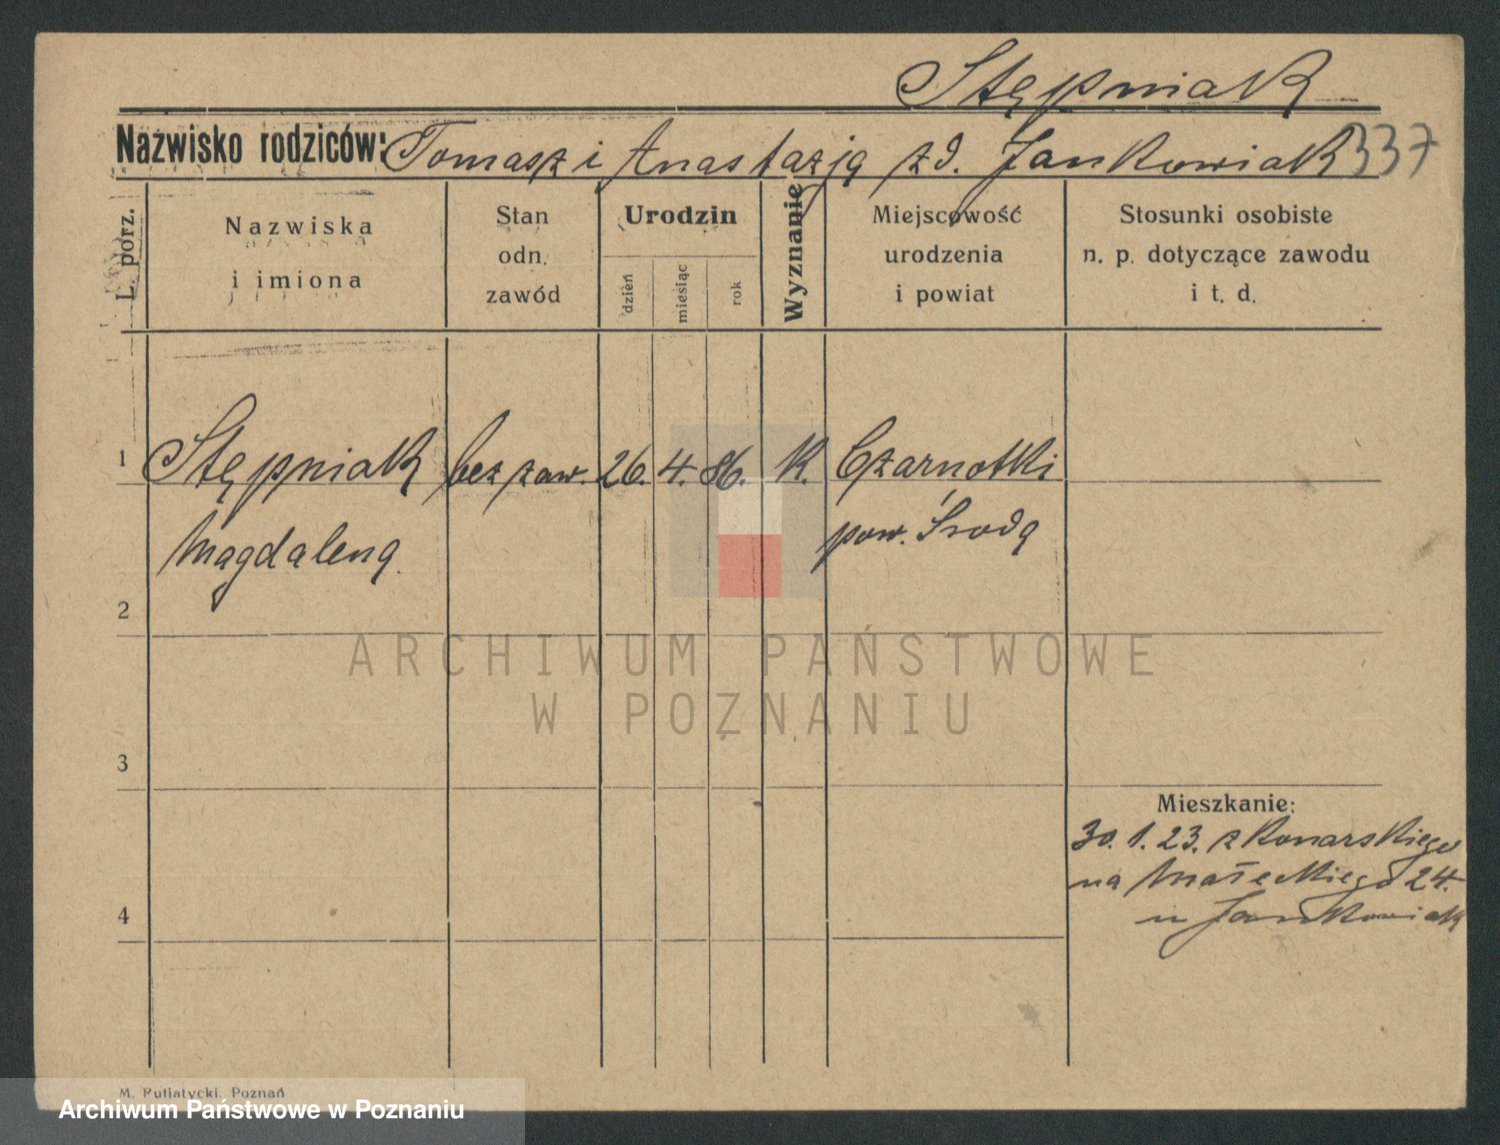 Stępniak
Nazwisko rodziców: Tomasz i Anastazją zd. Jankowiak 337
L. porz.
Nazwiska
i imiona
Stan
odn.
zawód
Urodzin
dzień
miesiąc
rok
Wyznanie
Miejscowość
urodzenia
i powiat
Stosunki osobiste
n. p. dotyczące zawodu
i t. d.
1 Stępniak bez zaw. 26. 4. 86. K. Czarnotki
Magdalena pow. Środa
2
ARCHIWUM PAŃSTWOWE
W POZNANIU
3
Mieszkanie:
30. 1. 23. z Konarskiego
na Małeckiego 24.
u Jankowiak
4
M. Putiatycki, Poznań
Archiwum Państwowe w Poznaniu